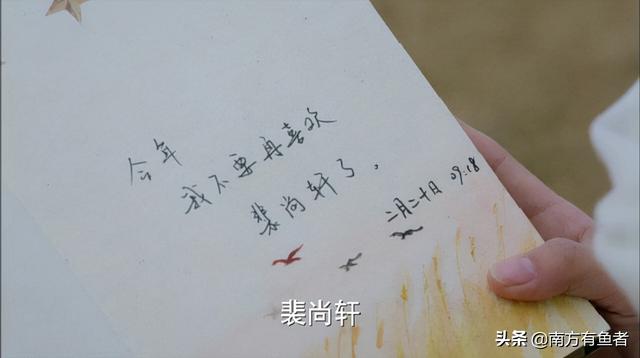 今年
我不要再喜欢
裴尚轩了。
二月二十日 09:18
裴尚轩
头条 @南方有鱼者